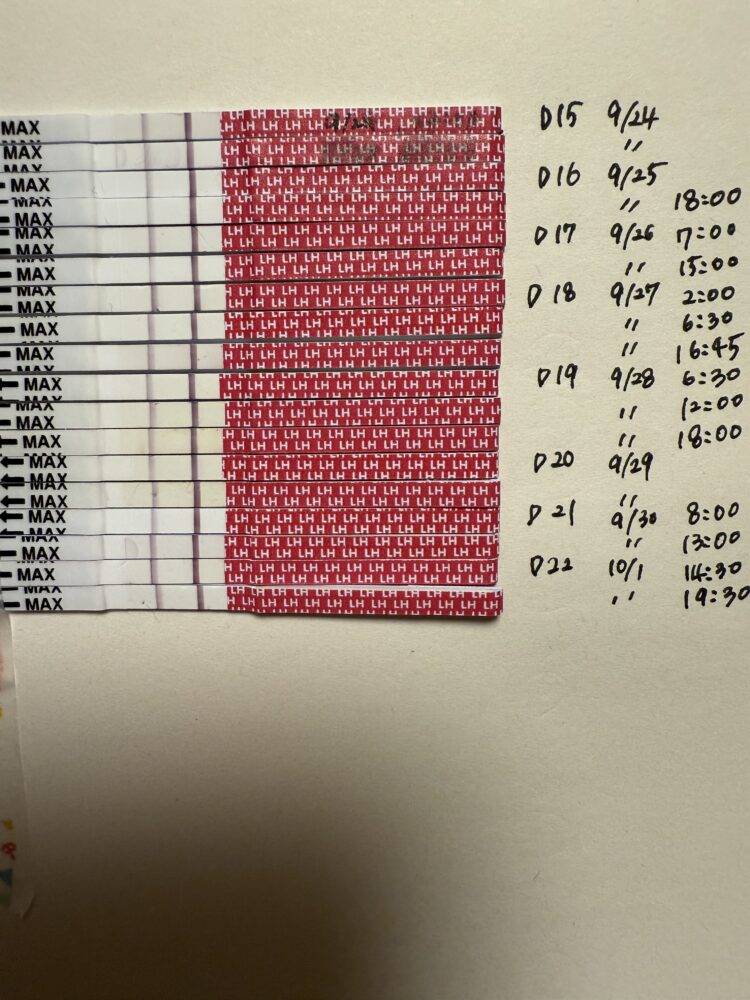 MAX D15 9/24
MAX 〃
MAX D16 9/25
MAX 〃 18:00
MAX D17 9/26 7:00
MAX 〃 15:00
MAX D18 9/27 2:00
MAX 〃 6:30
MAX 〃 16:45
MAX D19 9/28 6:30
MAX 〃 12:00
MAX 〃 18:00
MAX D20 9/29
MAX 〃
MAX D21 9/30 8:00
MAX 〃 13:00
MAX D22 10/1 14:30
MAX 〃 19:30
LH LH LH LH LH LH LH LH LH